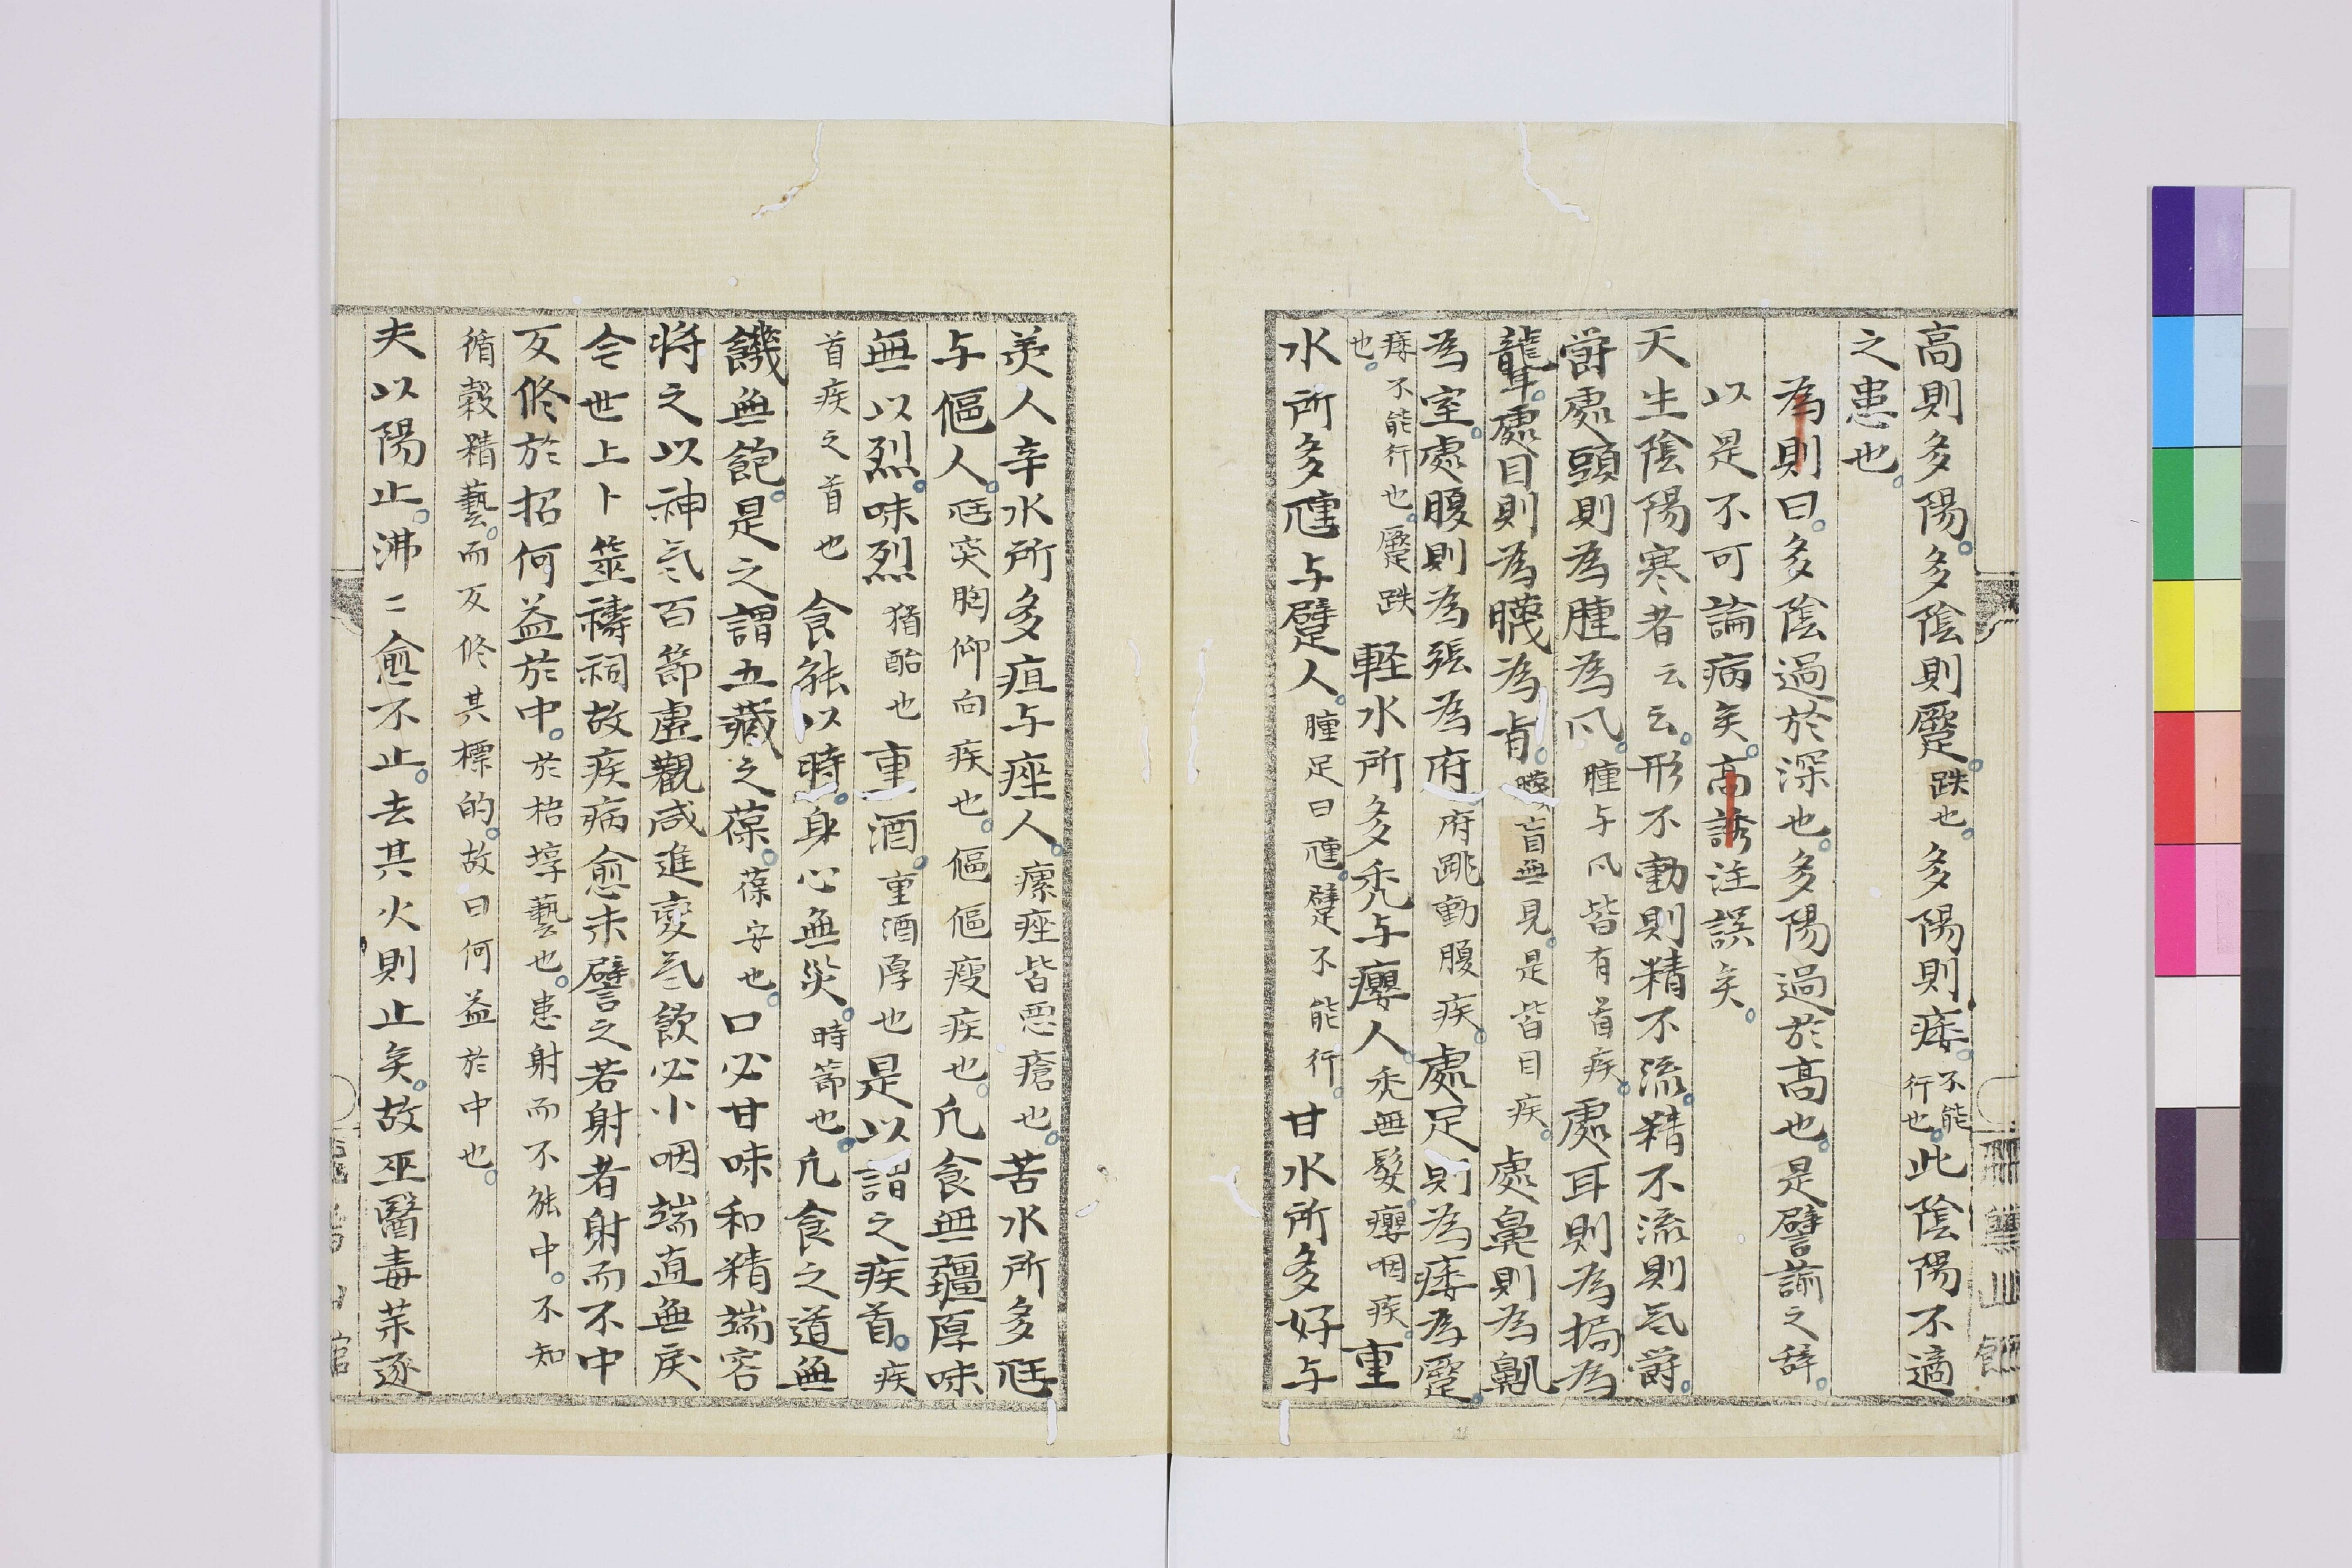 高則多陽多陰則蹷跌也多陽則痿不能行也此陰陽不適
之患也
為則曰多陰過於深也多陽過於高也是譬諭之辞
以是不可論病矣高誘注誤矣
天生陰陽寒者云云形不動則精不流精不流則气欝
欝處頭則為腫為风腫与风皆有首疾處耳則為挶為
聾處目則為䁾為肓䁾盲無見是皆目疾處鼻則為鼽
為室處腹則為張為府府跳動腹疾處足則為痿為蹷
痿不能行也蹷跌也軽水所多禿与癭人禿無髮癭咽疾重
水所多尰与躄人腫足曰尰躄不能行甘水所多好与
美人辛水所多疽与痤人瘭痤皆恶瘡也苦水所多尪
与傴人尪突胸仰向疾也傴傴瘦疾也凡食無彊厚味
無以烈味烈猶酷也重酒重酒厚也是以謂之疾首疾
首疾之首也食能以時身心無災時節也凡食之道無
饑無飽是之謂五藏之葆葆安也口必甘味和精端容
将之以神气百節虛觀咸進受气飲必小咽端直無戾
今世上卜筮禱祠故疾病愈来譬之若射者射而不中
反修於招何益於中於栢埻藝也患射而不能中不知
循彀精藝而反修其標的故曰何益於中也
夫以陽止沸二愈不止去其火則止矣故巫醫毒茉逐